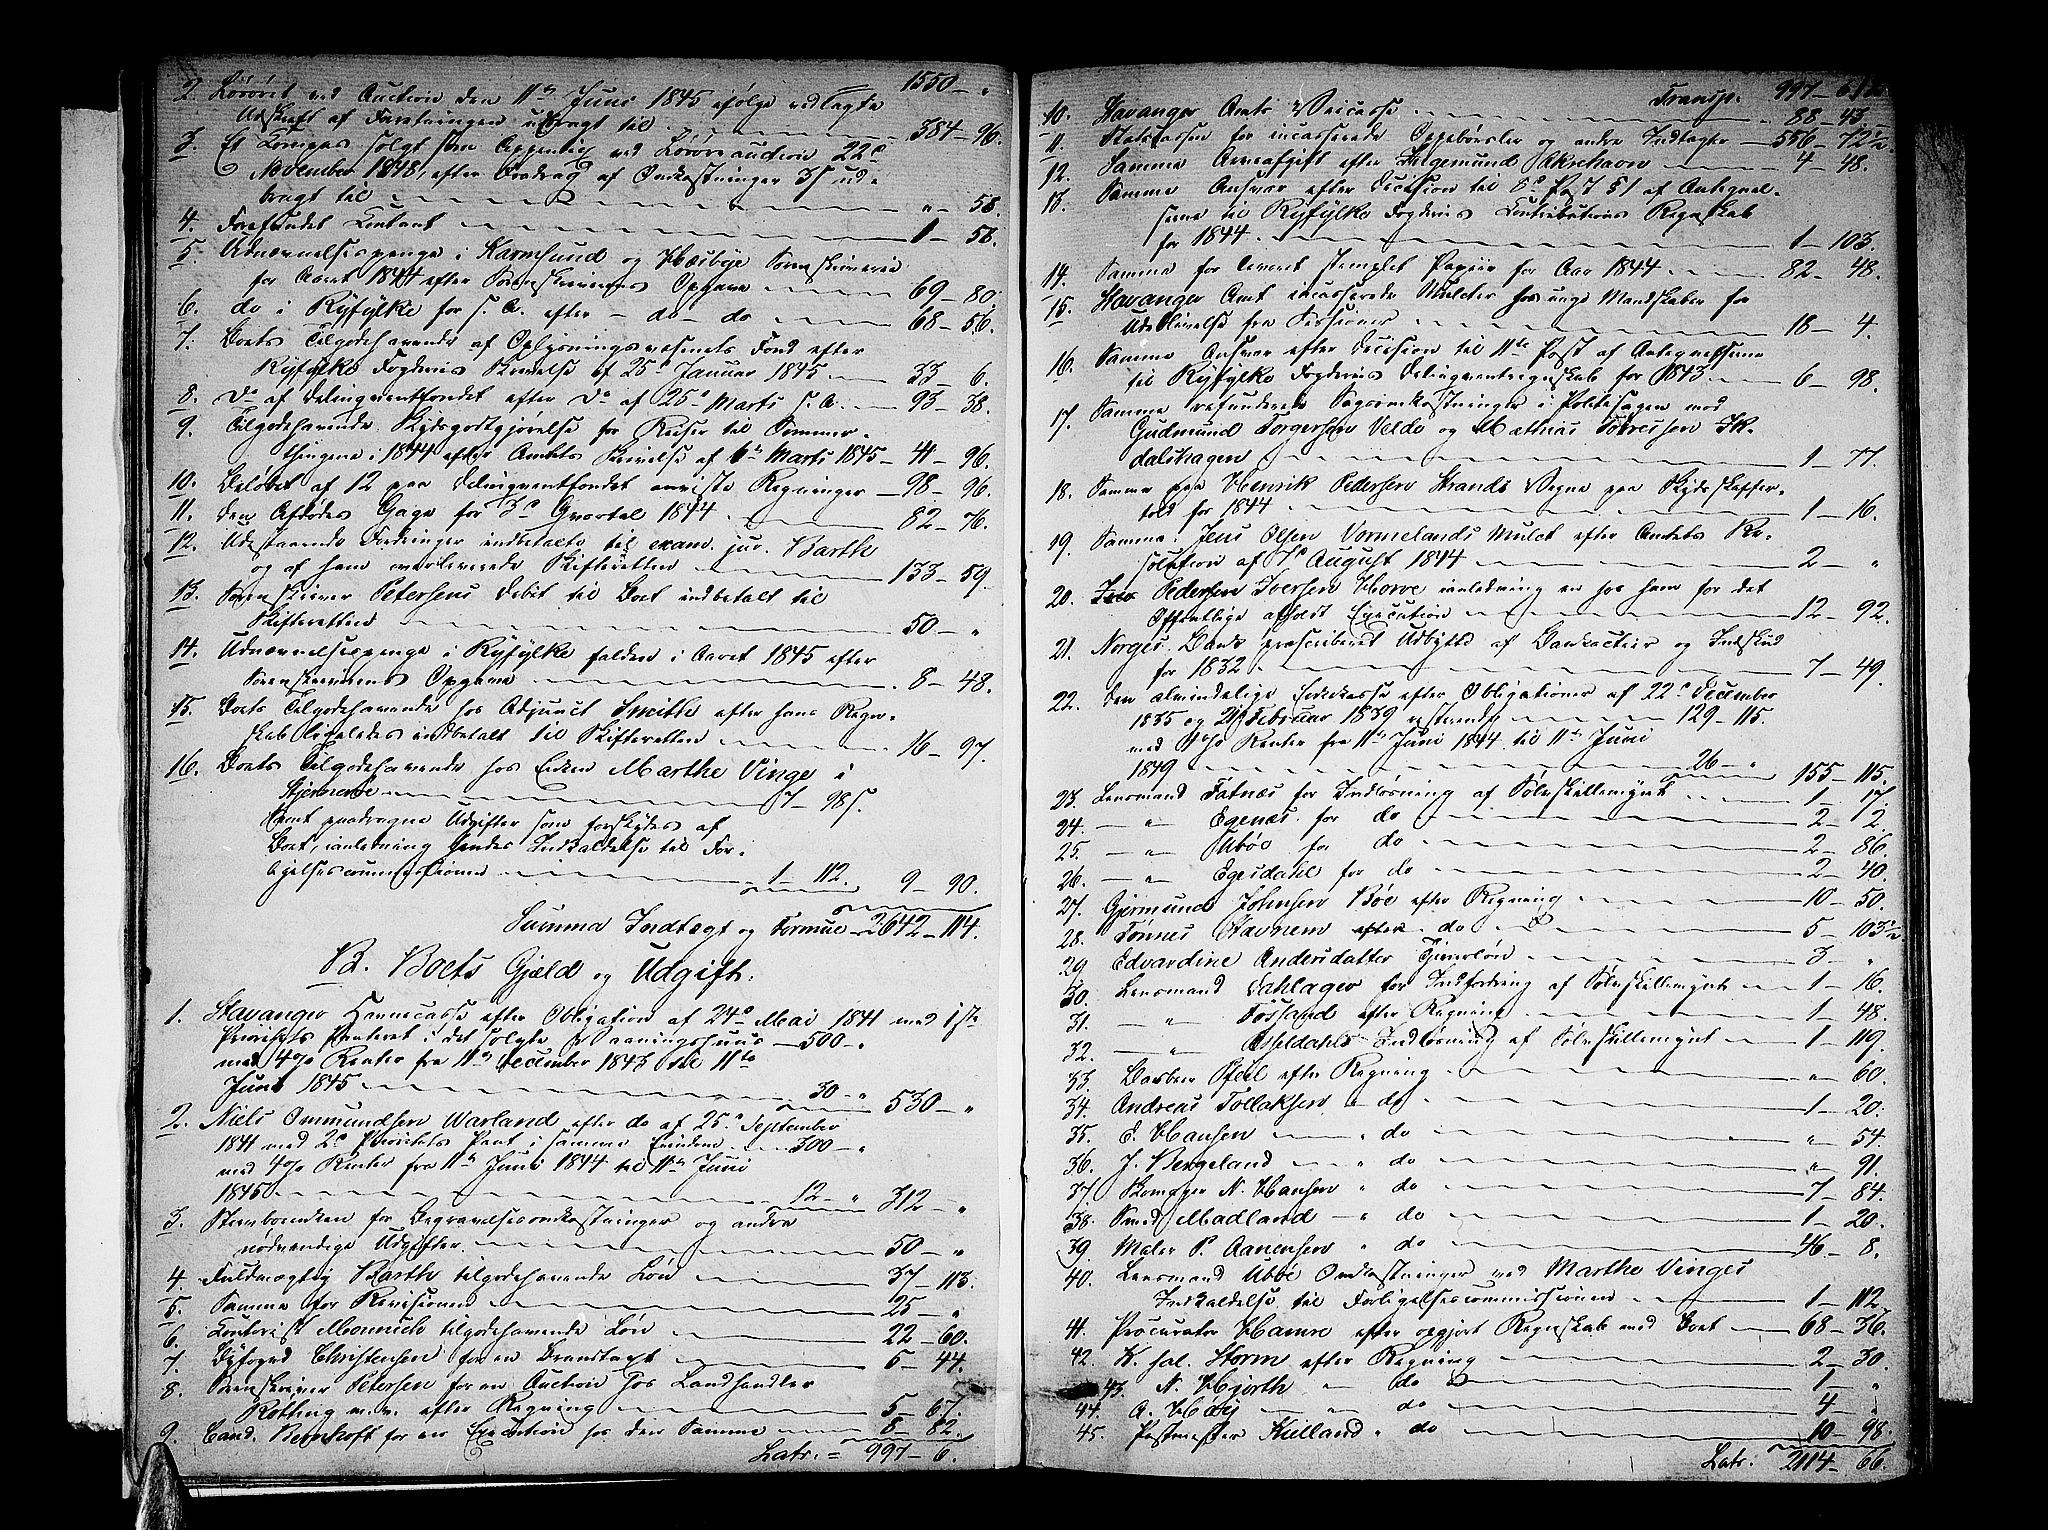 1550 — "
2. Løsøret ved Auction den 11te Juni 1845 ifølge vedlagte
Udskrift af Forretningen udbragt til 384 — 96.
3. Et Compas solgt som Appendix ved Løsøreauction 22de
November 1848, efter Fradrag af Omkostninger 31 ud-
bragt til " — 58.
4. Forefundet Contant 1 — 58.
5. Udnævnelsespenge i Karmsund og Hæsbye Sorenskriverie
for Aaret 1844 efter Sorenskriverens Opgave 69 — 80.
6. do i Ryfylke for s. A. efter — do — do 68 — 56.
7. Boets Tilgodehavende af Oplysningsvæsenets Fond efter
Ryfylke Fogderies Skrivelse af 25de Januar 1845 33 — 6.
8. Do af Delinqventfondet efter Do af 25de Marts s. A. 93 — 38.
9. Tilgodehavende Skydsgodtgjørelse for Reiser til Sommer-
thingene i 1844 efter Amtets Skrivelse af 6te Marts 1845 — 41 — 96.
10. Beløbet af 12 paa Delinqventfondet anviste Regninger — 98 — 96.
11. Den Afdødes Gage for 3de Qvartal 1844 82 — 76.
12. Udestaaende Fordringer indbetalte til exam. jur. Barth
og af ham overleverede Skifteretten 133 — 59.
13. Sorenskriver Petersens Debet til Boet indbetalt til
Skifteretten 50 — "
14. Udnævnelsespenge i Ryfylke falden i Aaret 1845 efter
Sorenskriverens Opgave 8 — 48.
15. Boets Tilgodehavende hos Adjunct Smith efter hans Regn-
skab ligeledes indbetalt til Skifteretten 16 — 97.
16. Boets Tilgodehavende hos Enken Marthe Vinge i
Stjernerøe 7 — 98
samt paadragne Udgifter som forskydes af
Boet, i anledning hendes Indkaldelse til For-
ligelsescommissionen 1 — 112. 9 — 90.
Summa Indtægt og Formue — 2642 — 114.
B. Boets Gjæld og Udgift.
1. Stavanger Havnecasse efter Obligation af 24de Mai 1841 med 1ste
Prioritets Panteret i det solgte Vaaningshuus — 500 — "
med 4% Renter fra 11te December 1843 til 11te
Juni 1845 30 — " 530 — "
2. Niels Ommundsen Warland efter do af 25de September
1841 med 2de Prioritets Pant i samme Eiendom 300 — "
med 4% Renter fra 11te Juni 1844 til 11te Juni
1845 12 — " 312 — "
3. Stervboenken for Begravelsesomkostninger og andre
nødvendige Udgifter 50 — "
4. Fuldmægtig Barth tilgodehavende Løn 37 — 113.
5. Samme for Revisionen 25 — "
6. Contorist Monnich tilgodehavende Løn 22 — 60.
7. Byfoged Christensen for en Brandtaxt 6 — 44.
8. Sorenskriver Petersen for en Auction hos Landhandler
Kolting m. v. efter Regning 5 — 67.
9. Cand. Bernhoft for en Execution hos den Samme 8 — 82.
Latr. = 997 — 6.
Transp. 997 — 6
10. Stavanger Amts Veicasse 88 — 43.
11. Statscassen for incasserede Oppebørsler og andre Indtægter — 556 — 72½
12. Samme Arveafgift efter Aagemund Akrehavn 4 — 48.
13. Samme Ansvar efter Decision til 6te Post § 1 af Antegnel-
serne til Ryfylke Fogderies Contributions Regnskab
for 1844 1 — 103.
14. Samme for leveret stemplet Papiir for Aar 1844 82 — 48.
15. Stavanger Amt incasserede Mulcter hos unge Mandskaber for
Udeblivelse fra Sessioner 18 — 4.
16. Samme Ansvar efter Decision til 11te Post af Antegnelserne
til Ryfylke Fogderies Delinqventregnskab for 1843 6 — 98.
17. Samme refunderede Sagsomkostninger i Politisagen mod
Gudmund Torgersen Velde og Mathias Torresen Ik-
dalshagen 1 — 77.
18. Samme paa Henrik Pedersen Strands Vegne paa Skydsskaffer-
told for 1844 1 — 16.
19. Samme: Jens Olsen Vormelands Mulct efter Amtets Re-
solution af 7de August 1844 2 — "
20. Pedersen Iversen Horve i anledning en hos ham for det
Offentlige afholdt Execution 12 — 92.
21. Norges Bank præscriberet Udbytte af Bankactier og Indskud
for 1832 7 — 49.
22. Den almindelige Enkekasse efter Obligationer af 22de December
1835 og 21de Februar 1839 resterende 129 — 115.
med 4% Renter fra 11te Juni 1844 til 11te Juni
1849 26 — " 155 — 115.
23. Lensmand Tatnæs for Indløsning af Sølvskillemynt 1 — 17.
24. — " Egenæs for do 2 — 2.
25. — " Ubøe for do 2 — 86.
26. — " Egesdahl for do 2 — 40.
27. Gjermund Johnsen Bøe efter Regning 10 — 50.
28. Tønnes Stavnem efter do 5 — 103½
29 Edvardine Andersdatter Tjenerløn 3 — "
30. Lensmand Dahlager for Indfordring af Sølvskillemynt 1 — 16.
31. — " Fossand efter Regning 1 — 48.
32. — " Asseldahls Indløsning af Sølvskillemynt 1 — 119.
33. Barber Pfeil efter Regning " — 60.
34. Andreas Tollaksen " do 1 — 20.
35. E. Hansen " do " — 54.
36. J. Bergeland " do " — 91.
37. Skomager N. Hansen " do 7 — 84.
38. Smed Madland " do 1 — 20.
39 Maler P. Aanensen " do 46 — 8.
40. Lensmand Ubøe Omkostninger ved Marthe Vinges
Indkaldelse til Forligelsescommissionen 1 — 112.
41. Procurator Hamre efter opgjort Regnskab med Boet 68 — 36.
42. K. sal. Storm efter Regning 2 — 30.
43. N. Hjorth " do 1 — "
44. A. Høy " do 4 "
45. Postmester Kielland " do 10 — 98.
Latr. 2114 — 66.